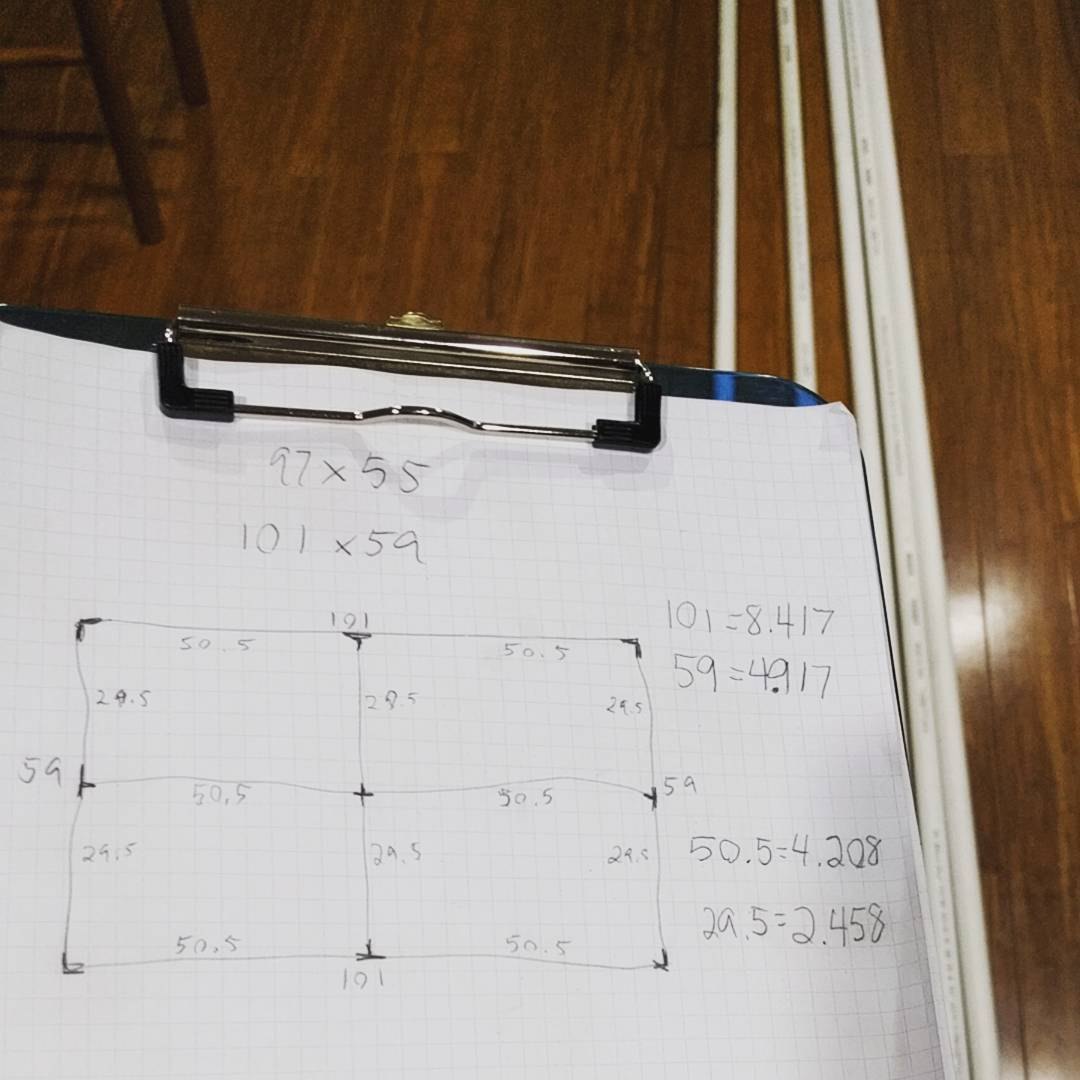 97 x 55
101 x 59
101
50.5 50.5
29.5 29.5 29.5
59 59
50.5 50.5
29.5 29.5 29.5
50.5 50.5
101
101=8.417
59=4.917
50.5=4.208
29.5=2.458